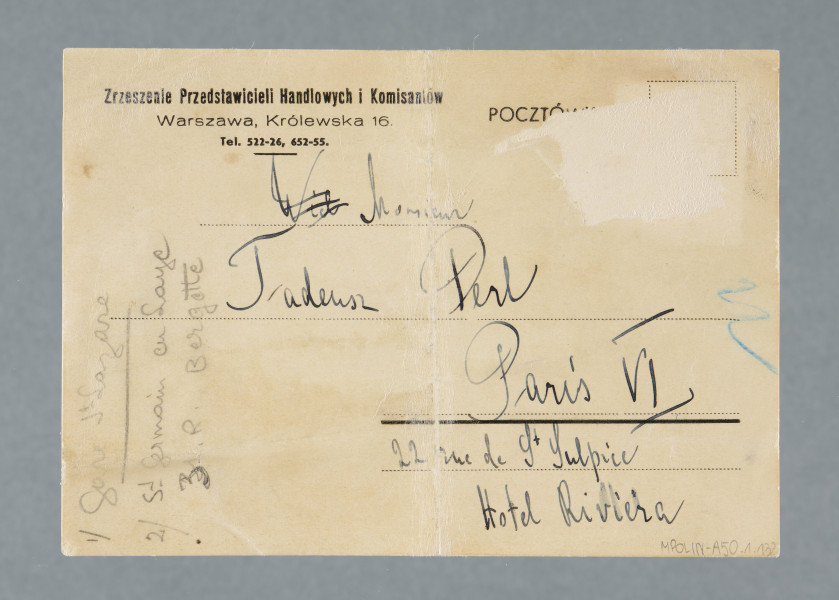 Zrzeszenie Przedstawicieli Handlowych i Komisantów
Warszawa, Królewska 16.
Tel. 522-26, 652-55.
POCZTÓWK
Monsieur
Tadeusz Perl
Paris VI
22 rue de St Sulpice
Hotel Riviera
1/ Gare St Lazare
2/ St Germain en Laye
3 R. Bergette
MPOLIN-A50.1.132